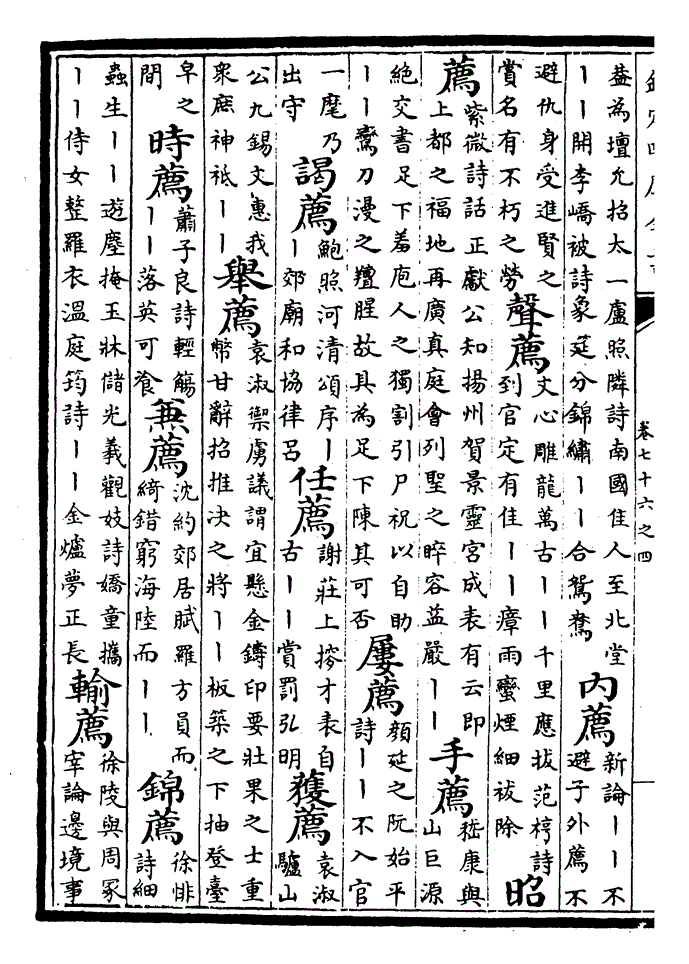 卷七十六之四
益為壇允招太一盧照隣詩南國佳人至北堂
｜｜開李嶠被詩象筵分錦繡｜｜合鴛鴦
內薦
新論｜｜不
避子外薦不
避仇身受進賢之
賞名有不朽之勞
聲薦
文心雕龍萬古｜｜千里應拔范梈詩
到官定有佳｜｜瘴雨蠻煙細祓除
昭
薦
紫微詩話正獻公知揚州賀景靈宮成表有云即
上都之福地再廣真庭會列聖之睟容益嚴｜｜
手薦
嵇康與
山巨源
絕交書足下羞庖人之獨割引尸祝以自助
｜｜鸞刀漫之羶腥故具為足下陳其可否
屢薦
顏延之阮始平
詩｜｜不入官
一麾乃
出守
謁薦
鮑照河清頌序｜
｜郊廟和協律呂
任薦
謝莊上搜才表自
古｜｜賞罰弘明
獲薦
袁淑
驢山
公九錫文惠我
衆庶神祗｜｜
舉薦
袁淑禦虜議謂宜懸金鑄印要壯果之士重
幣甘辭招推决之將｜｜板築之下抽登臺
皁之
間
時薦
蕭子良詩輕觴
｜｜落英可飡
兼薦
沈約郊居賦羅方員而
綺錯窮海陸而｜｜
錦薦
徐悱
詩細
蟲生｜｜遊塵掩玉牀儲光羲觀妓詩嬌童攜
｜｜侍女整羅衣溫庭筠詩｜｜金爐夢正長
輸薦
徐陵與周冢
宰論邊境事